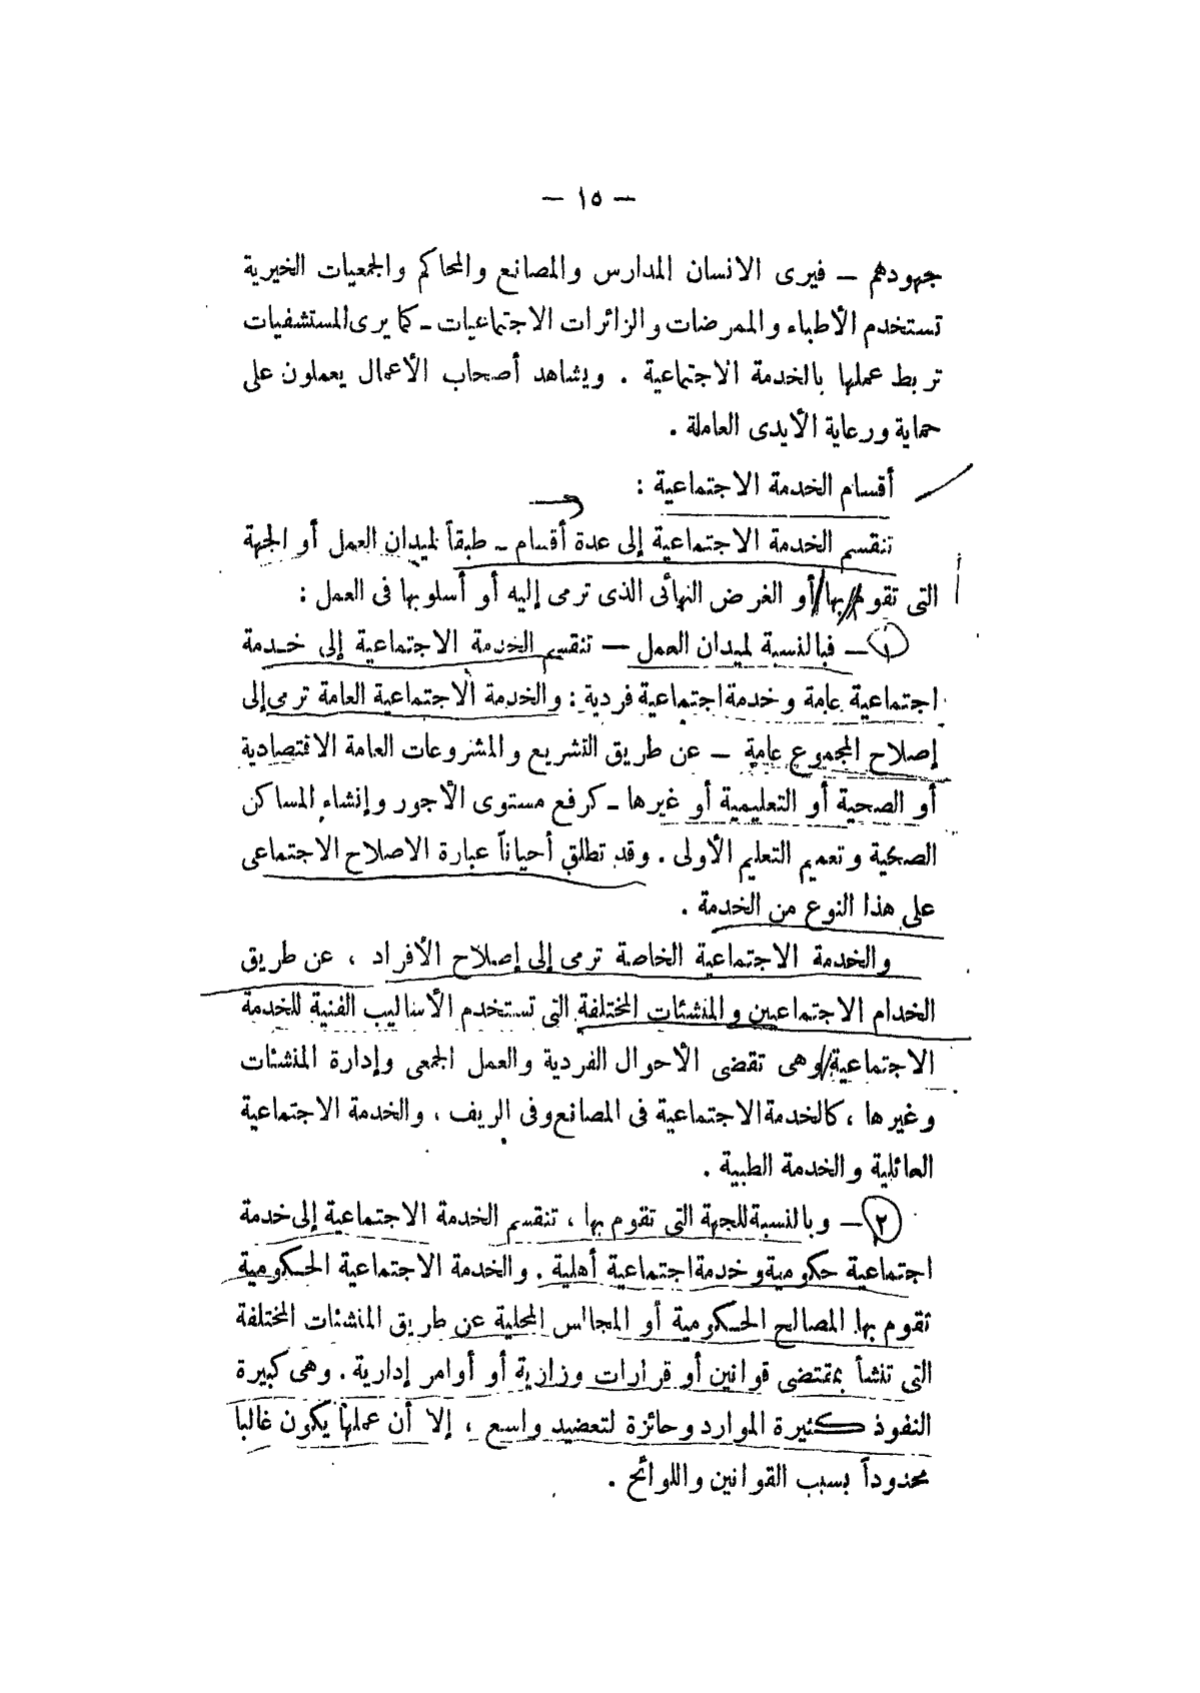 — ١٥ —
جهودهم — فيرى الانسان المدارس والمصانع والمحاكم والجمعيات الخيرية
تستخدم الأطباء والممرضات والزائرات الاجتماعيات — كما يرى المستشفيات
تربط عملها بالخدمة الاجتماعية . ويشاهد أصحاب الأعمال يعملون على
حماية ورعاية الأيدى العاملة .
أقسام الخدمة الاجتماعية :
تنقسم الخدمة الاجتماعية إلى عدة أقسام — طبقاً لميدان العمل أو الجهة
التى تقوم بها أو الغرض النهائى الذى ترمى إليه أو أسلوبها فى العمل :
١ — فبالنسبة لميدان العمل — تنقسم الخدمة الاجتماعية إلى خدمة
اجتماعية عامة وخدمة اجتماعية فردية : والخدمة الاجتماعية العامة ترمى إلى
إصلاح المجموع عامة — عن طريق التشريع والمشروعات العامة الاقتصادية
أو الصحية أو التعليمية أو غيرها — كرفع مستوى الأجور وإنشاء المساكن
الصحية وتعميم التعليم الأولى . وقد تطلق أحياناً عبارة الاصلاح الاجتماعى
على هذا النوع من الخدمة .
والخدمة الاجتماعية الخاصة ترمى إلى إصلاح الأفراد ، عن طريق
الخدام الاجتماعيين والمنشئات المختلفة التى تستخدم الأساليب الفنية للخدمة
الاجتماعية وهى تقضى الأحوال الفردية والعمل الجمعى وإدارة المنشئات
وغيرها ، كالخدمة الاجتماعية فى المصانع وفى الريف ، والخدمة الاجتماعية
العائلية والخدمة الطبية .
٢ — وبالنسبة للجهة التى تقوم بها ، تنقسم الخدمة الاجتماعية إلى خدمة
اجتماعية حكومية وخدمة اجتماعية أهلية . والخدمة الاجتماعية الحكومية
تقوم بها المصالح الحكومية أو المجالس المحلية عن طريق المنشئات المختلفة
التى تنشأ بمقتضى قوانين أو قرارات وزارية أو أوامر إدارية . وهى كبيرة
النفوذ كثيرة الموارد وحائزة لتعضيد واسع ، إلا أن عملها يكون غالباً
محدوداً بسبب القوانين واللوائح .